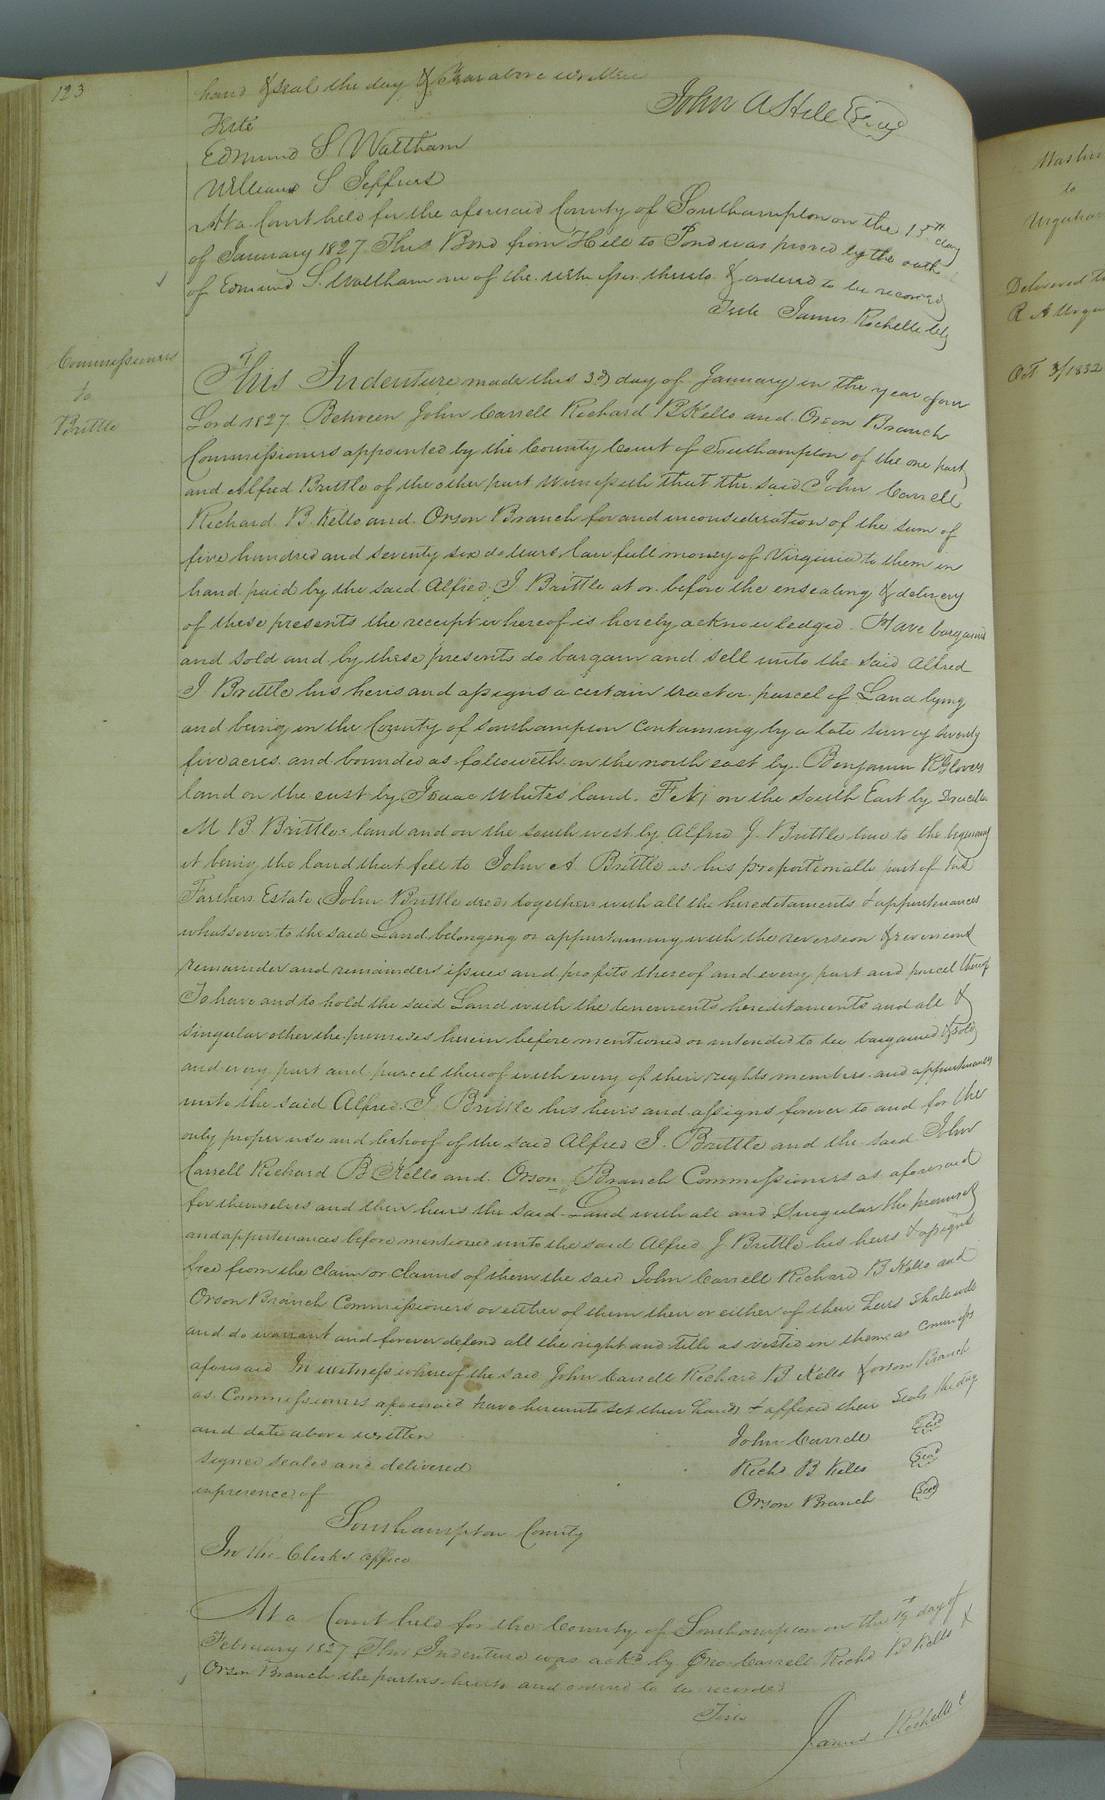 123
hand & seal the day & Year above written
John A Hill Seal
Teste
Edmund S. Waltham
William S Jeffries
At a Court held for the aforesaid County of Southampton on the 15th day
of January 1827 This Bond from Hill to Pond was proved by the oath
of Edmund S. Waltham one of the witnesses thereto & ordered to be recorded
Teste James Rochelle Clk
Commissioners
to
Brittle
This Indenture made this 3d day of January in the year of our
Lord 1827. Between John Carrell Richard B Kello and Orson Branch
Commissioners appointed by the County Court of Southampton of the one part
and Alfred Brittle of the other part Witnesseth that the said John Carrell
Richard B. Kello and Orson Branch for and in consideration of the sum of
five hundred and seventy six dollars lawfull money of Virginia to them in
hand paid by the said Alfred J Brittle at or before the ensealing & delivery
of these presents the receipt whereof is hereby acknowledged. Have bargained
and sold and by these presents do bargain and sell unto the said Alfred
J Brittle his heirs and assigns a certain tract or parcel of Land lying
and being in the County of Southampton Containing by a late survey
five acres and bounded as followeth on the north east by Benjamin Glovers
land on the east by Isaac Whites land. on the South East by
M B Brittles land and on the south west by Alfred J. Brittle line to the begining
it being the land that fell to John A Brittle as his proportionable part of his
Farthers Estate John Brittle decd together with all the hereditaments & appurtenances
whatsoever to the said Land belonging or appertaining with the reversion & reversions
remainder and remainders issues and profits thereof and every part and parcel thereof
To have and to hold the said Land with the tenements hereditaments and all &
singular other the premises herein before mentioned or intended to be bargained & sold
and every part and parcel thereof with every of their rights members and appurtenances
unto the said Alfred J Brittle his heirs and assigns forever to and for the
only proper use and behoof of the said Alfred J. Brittle and the said John
Carrell Richard B Kello and Orson Branch Commissioners as aforesaid
for themselves and their heirs the said Land with all and Singular the premises
and appurtenances before mentioned unto the said Alfred J Brittle his heirs & assigns
free from the claim or claims of them the said John Carrell Richard B Kello and
Orson Branch Commissioners or either of them their or either of their heirs shall will
and do warrant and forever defend all the right and title as vested in them as Commiss
aforesaid In witness whereof the said John Carrell Richard B Kello & Orson Branch
as Commissioners aforesaid have hereunto set their hands & affixed their Seals the day
and date above written
John Carrell Seal
Signed sealed and delivered
Richd B Kello Seal
in presence of
Orson Branch Seal
Southampton County
In the Clerks office
At a Court held for the County of Southampton on the day of
February 1827 This Indenture was ackd by Jno Carrell Richd B Kello &
Orson Branch the parties hereto and ordered to be recorded
Teste
James Rochelle C
to
Urquhart
Delivered to
R A Urqu
Oct 3/1832